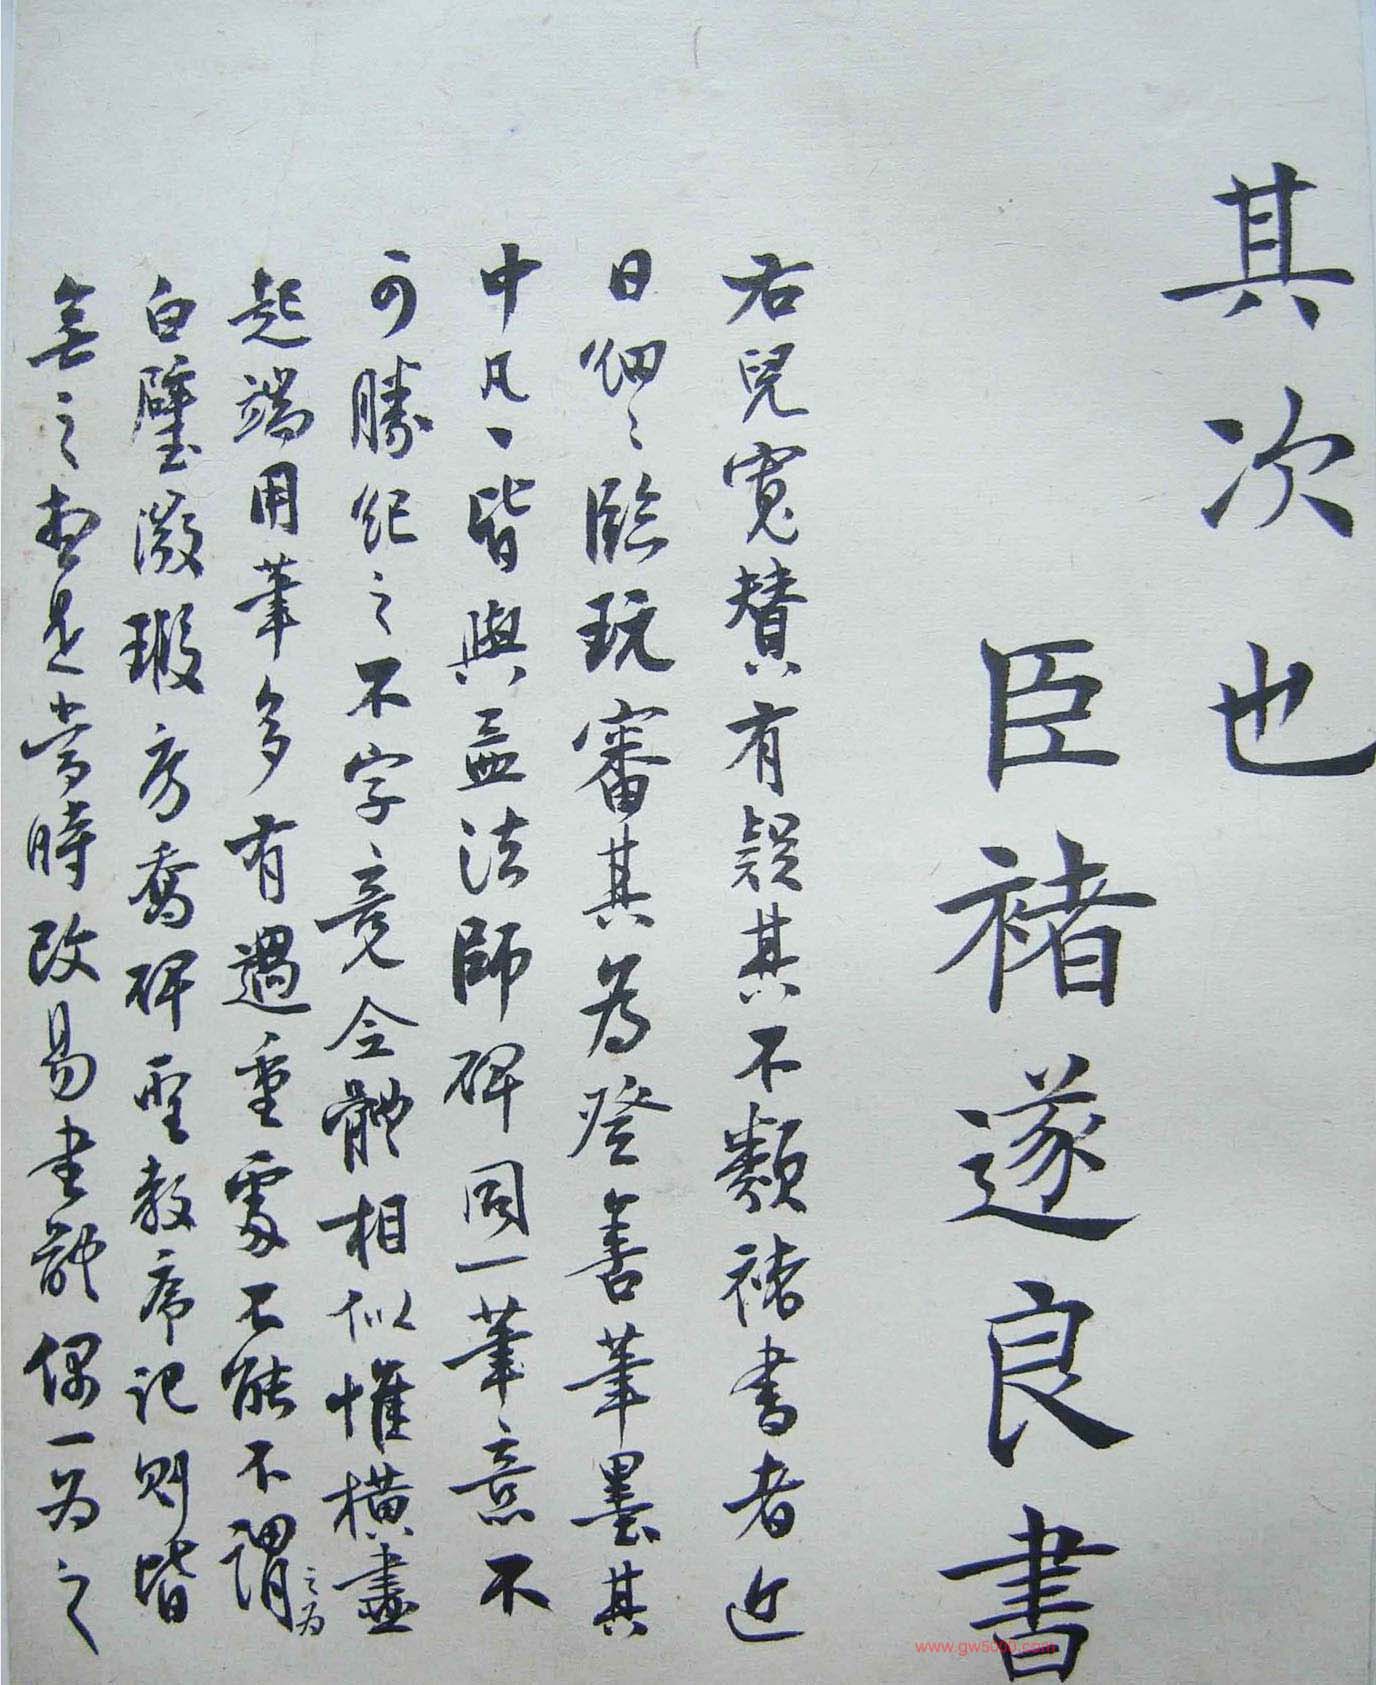 其次也
臣褚遂良書
右兒寬贊有疑其不類褚書者近
日細〻臨玩審其為登善筆墨其
中凡丶皆與孟法師碑同一筆意不
可勝紀之不字竟全體相似惟橫畫
起端用筆多有過重處不能不謂之為
白璧微瑕房喬碑聖教序記則皆
無之想是當時改易書體偶一為之
www.gw5000.com